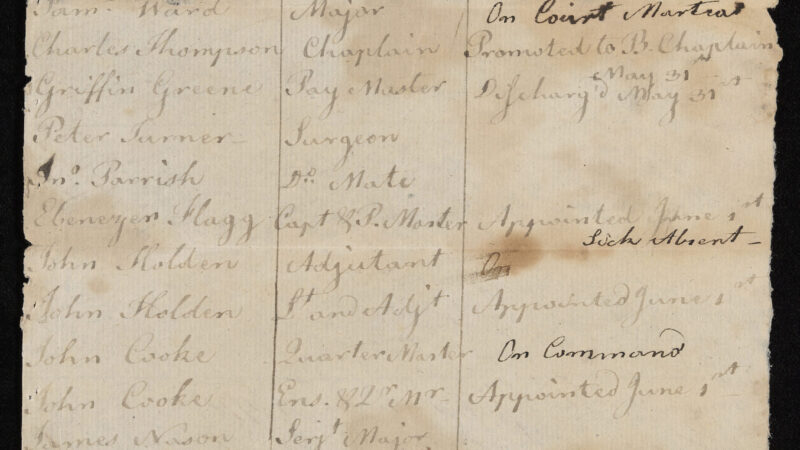 Sam.l Ward Major On Court Martial
Charles Thompson Chaplain Promoted to B. Chaplain
May 31st
Griffin Greene Pay Master Discharg'd May 31st
Peter Turner Surgeon
Jno. Parrish Do. Mate
Ebenezer Flagg Capt & P. Master Appointed June 1st
Sick Absent
John Holden Adjutant On
John Holden Lt and Adjt Appointed June 1st
John Cooke Quarter Master On Command
John Cooke Ens. & Qr Mr. Appointed June 1st
James Nason Serjt Major